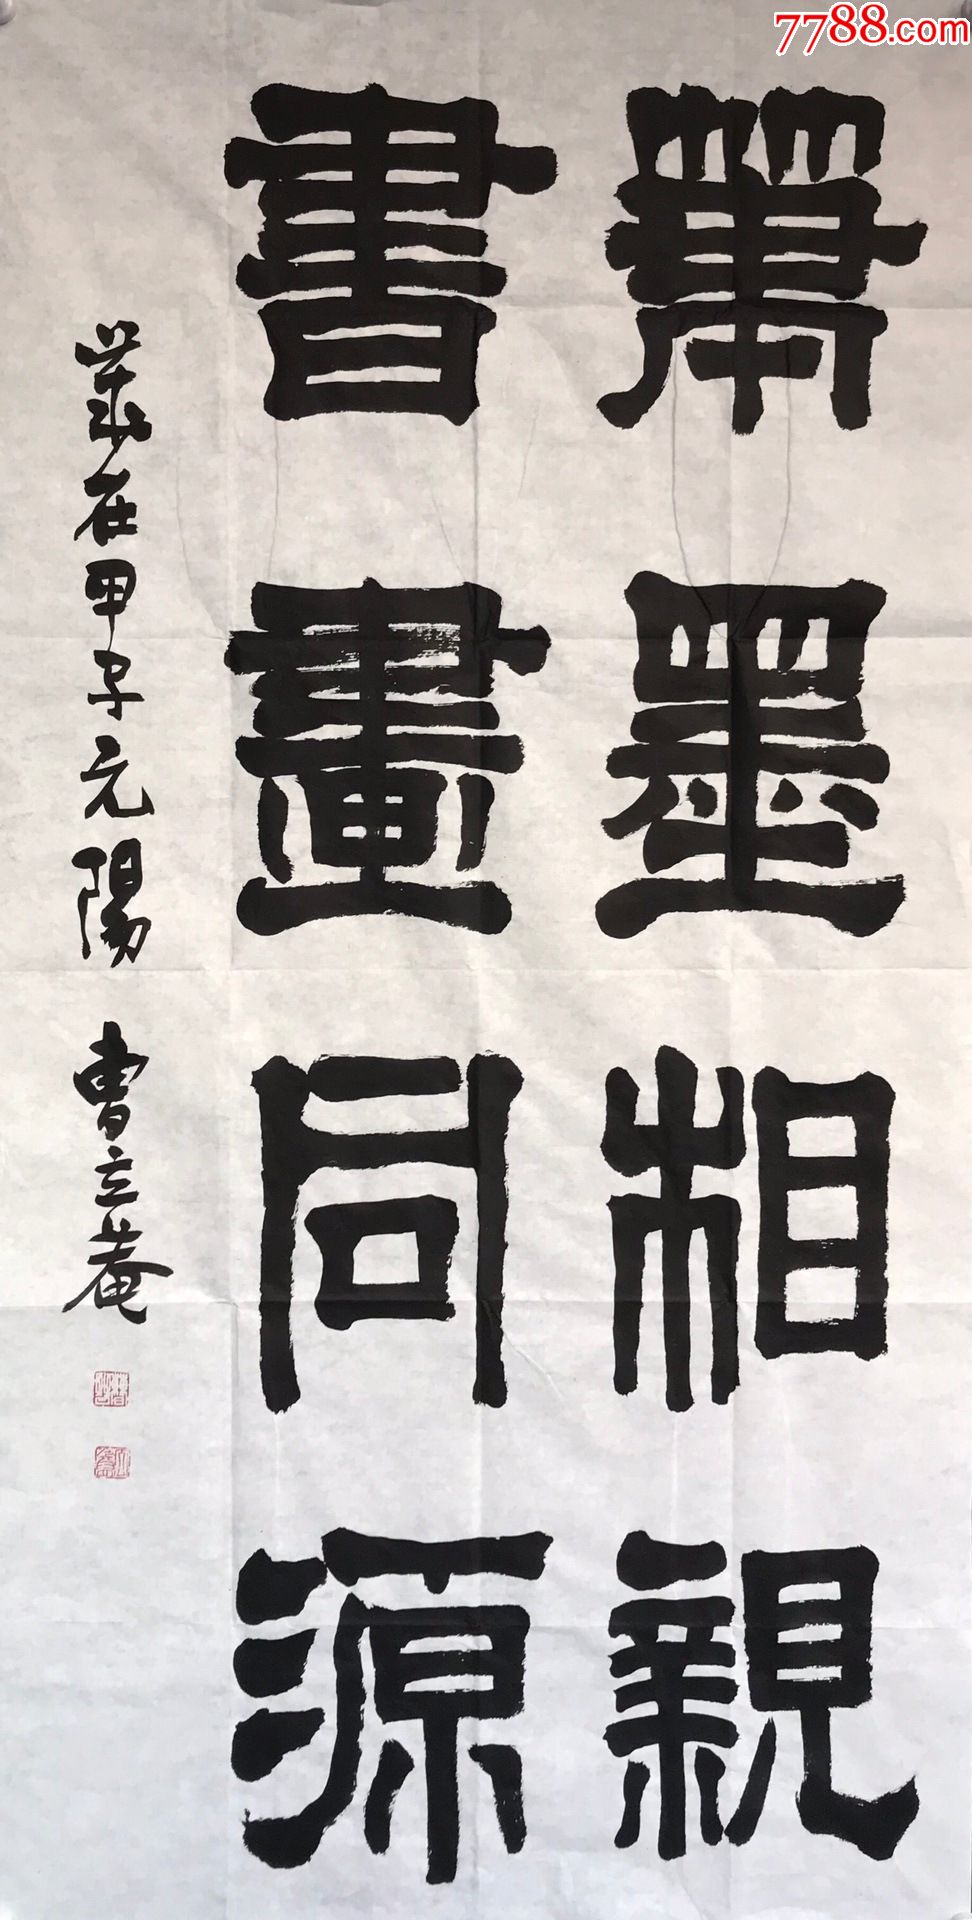 7788.com
筆墨相親
書畫同源
歲在甲子元陽 曹立菴